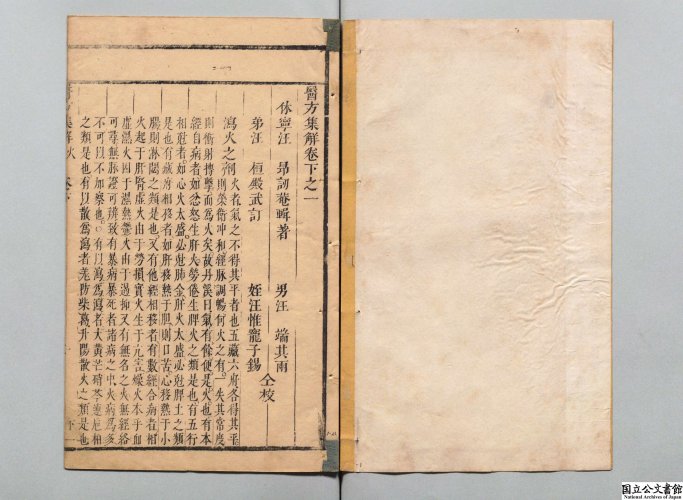 醫方集解卷下之一
休寧汪 昂訒菴輯著 男汪 端其兩
弟汪 桓殿武訂 姪汪惟寵子錫 仝校
瀉火之劑 火者氣之不得其平者也五藏六府各得其平
則榮衛冲和經脉調暢何火之有一失其常度
則衝射搏擊而爲火矣故丹溪曰氣有餘便是火也有本
經自病者如忿怒生肝火勞倦生脾火之類是也有五行
相尅者如心火太盛必尅肺金肝火太盛必尅脾土之類
是也有藏府相移者如肝移熱于胆則口苦心移熱于小
腸則淋閟之類是也又有他經相移者有數經合病者相
火起于肝腎虛火由于勞損實火生于亢害燥火本乎血
虛濕火因于濕熱鬱火由于遏抑又有無名之火無經絡
可尋無脉證可辨致有暴病暴死者諸病之中火病爲多
不可以不加察也○有以瀉爲瀉者大黄芒硝芩連梔柏
之類是也有以散爲瀉者羌防柴葛升陽散火之類是也
國立公文書館
National Archives of Japan